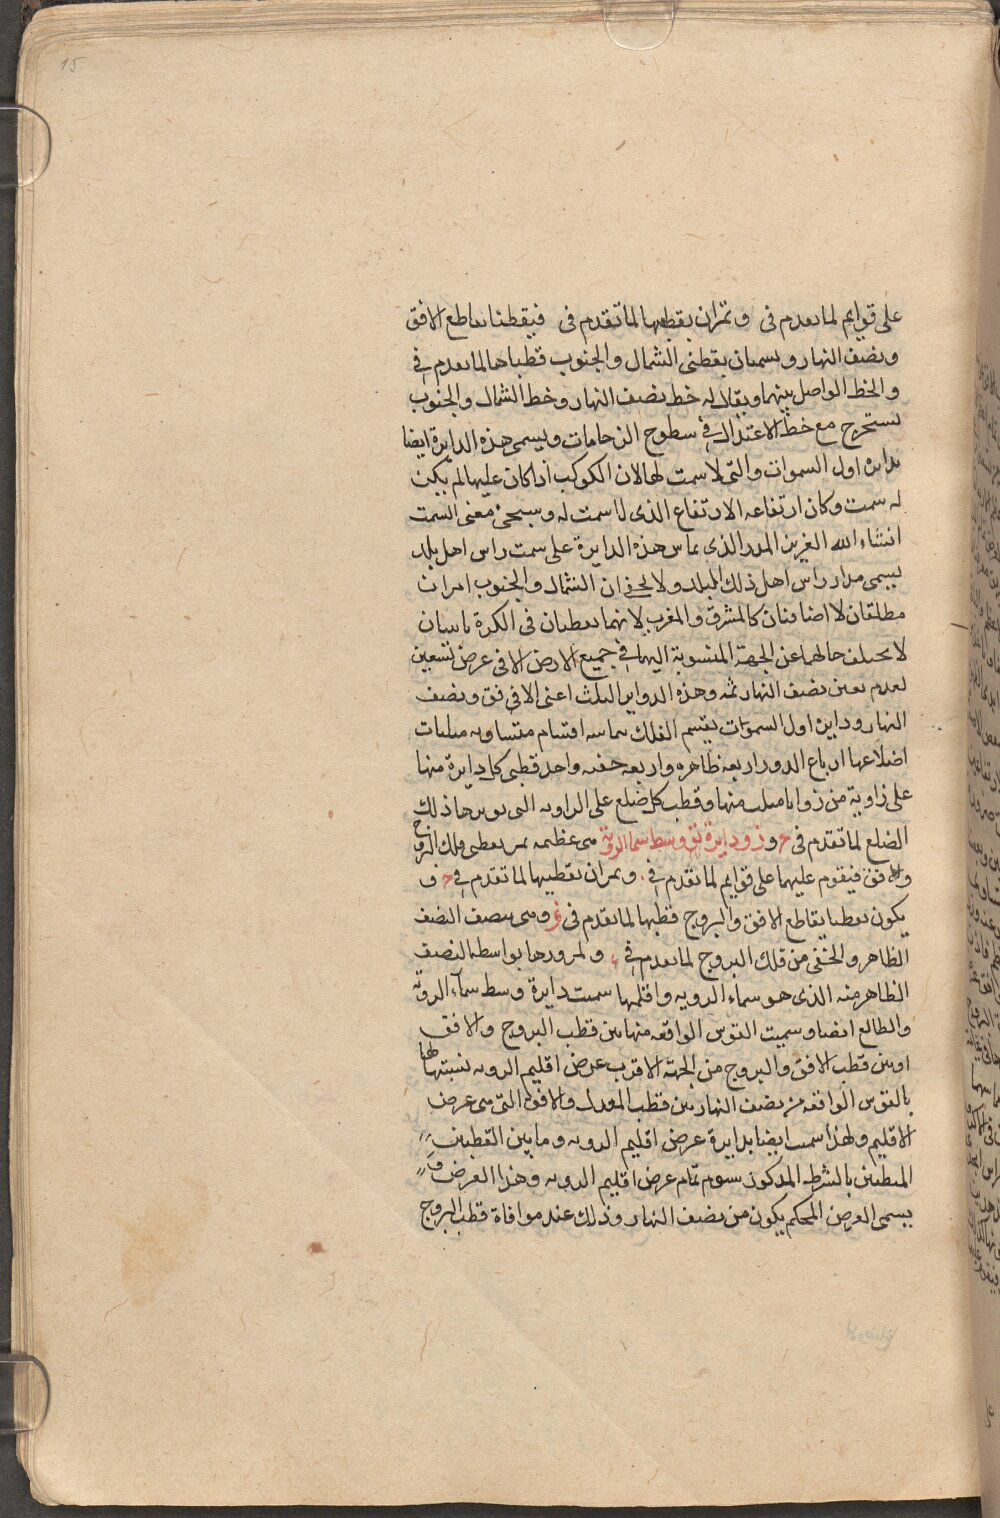 15
على قوايم لما تقدم فى و تمران بقطبها لما تقدم فى فيقطنا تقاطع الافق
ونصف النهار ويسميان بقطبى الشمال والجنوب قطباها لما تقدم فى
والخط الواصل بينهما ويقال له خط نصف النهار وخط الشمال والجنوب
يستخرج مع خط الاعتدال فى سطوح الرخامات ويسمى هذه الدايرة ايضا
بدايره اول السموات والتى لا سمت لها لان الكوكب اذا كان عليها لم يكن
له سمت وكان ارتفاعه الارتفاع الذى لا سمت له وسيجئ معنى السمت
انشاء الله العزيز المدار الذى يماس هذه الدايرة على سمت راس اهل بلد
يسمى مدار راس اهل ذلك البلد ولا يخفى ان الشمال والجنوب امران
مطلقان لا اضافيان كالمشرق والمغرب لانهما نقطتان فى الكرة ثابتتان
لا يختلف حالهما عن الجهة المنسوبة اليها فى جميع الارض الا فى عرض تسعين
لعدم تعين نصف النهار ثمه وهذه الدواير الثلث اعنى الافق ونصف
النهار ودايره اول السموات يقسم الفلك بثمانيه اقسام متساويه مثلثات
اضلاعها ارباع الدور اربعه ظاهره واربعه خفيه واحد قطبى كل دايرة منها
على زاوية من زوايا مثلث منها وقطب كل ضلع على الزاويه التى يوترها ذلك
الضلع لما تقدم فى ح و ز ودايرة وسط سما الروية هى عظيمه تمر بقطبى فلك البروج
والافق فيقوم عليهما على قوايم لما تقدم فى و تمران بقطبيها لما تقدم فى ح و
يكون نقطتا تقاطع الافق والبروج قطبها لما تقدم فى و هى تنصف النصف
الظاهر والخفى من فلك البروج لما تقدم فى و لمرورها بواسطه النصف
الظاهر منه الذى هو سماء الرويه واقليمها سميت دايرة وسط سمآء الرويه
والطالع ايضا وسميت القوس الواقعه منها بين قطب البروج والافق
او بين قطب الافق والبروج من الجهة الاقرب عرض اقليم الرويه لنسبتها لها
بالقوس الواقعه من نصف النهار بين قطب المعدل والافق التى هى عرض
الاقليم ولهذا سميت ايضا بدايرة عرض اقليم الرويه وما بين القطبين
المنطقتين بالشرط المذكور يسمى تمام عرض اقليم الرويه وهذا العرض
يسمى العرض المحكم يكون من نصف النهار وذلك عند موافاة قطب البروج